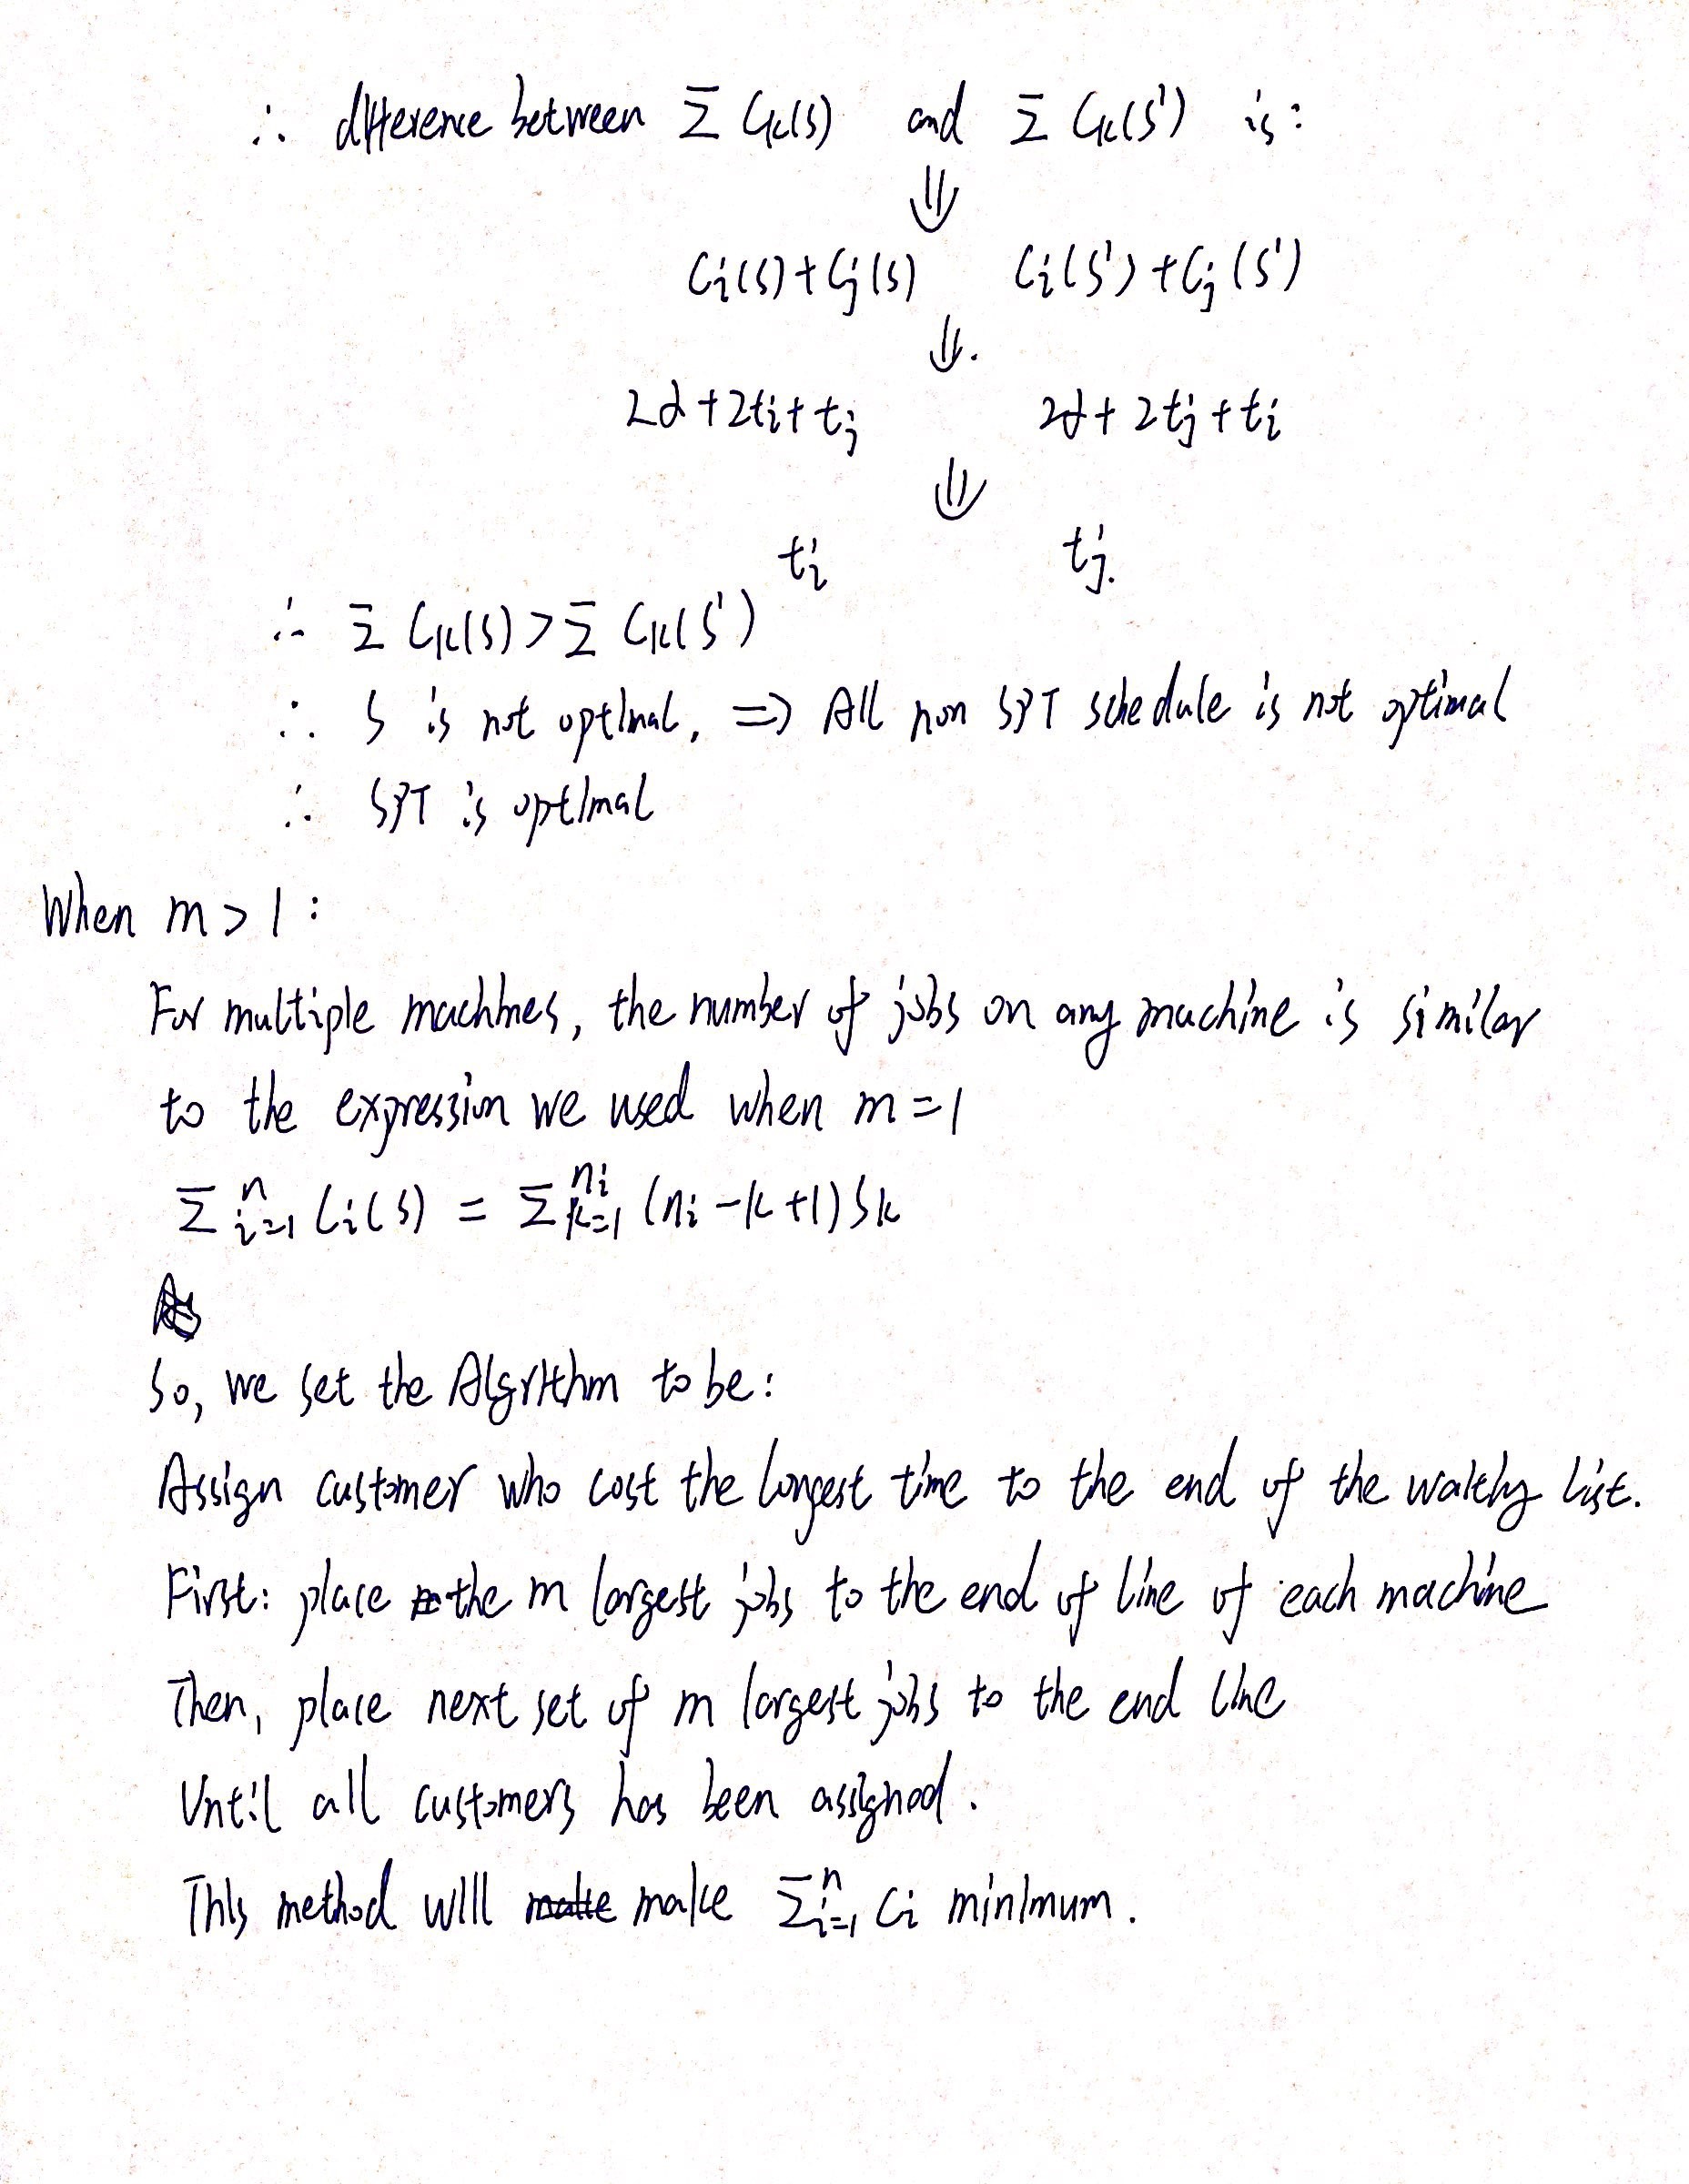 ∴ difference between Σ Ck(s) and Σ Ck(s') is:
⇓
Ci(s)+Cj(s) Ci(s')+Cj(s')
⇓.
2α+2ti+tj 2α+2tj+ti
⇓
ti tj.
∴ Σ Ck(s)>Σ Ck(s')
∴ S is not optimal, ⇒ All non SPT schedule is not optimal
∴ SPT is optimal
When m > 1 :
For multiple machines, the number of jobs on any machine is similar
to the expression we used when m=1
Σ n i=1 Ci(s) = Σ ni k=1 (ni-k+1)Sk
So, we set the Algrithm to be:
Assign customer who cost the longest time to the end of the waiting list.
First: place the m largest jobs to the end of line of each machine
Then, place next set of m largest jobs to the end line
Until all customers has been assigned.
This method will make Σ n i=1 Ci minimum.